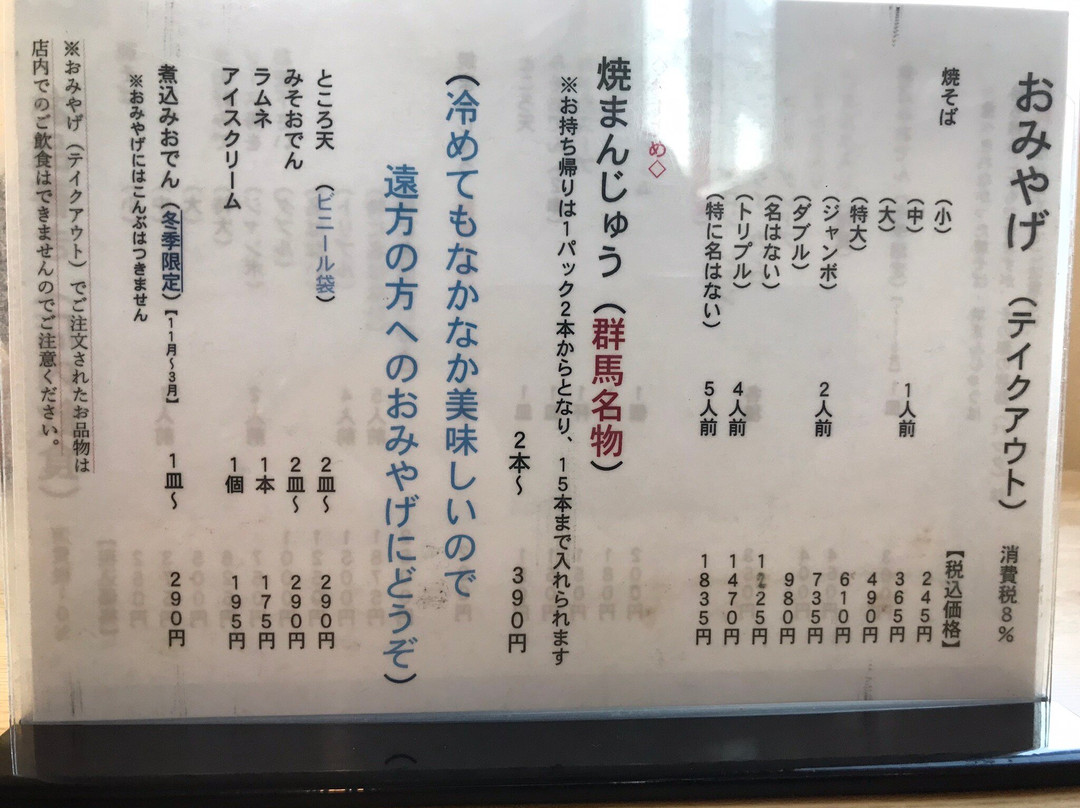 おみやげ (テイクアウト) 消費税8%
【税込価格】
焼そば (小) 245円
(中) 1人前 365円
(大) 490円
(特大) 610円
(ジャンボ) 2人前 735円
(ダブル) 980円
(名はない) 1225円
(トリプル) 4人前 1470円
(特に名はない) 5人前 1835円
め◇
焼まんじゅう (群馬名物)
※お持ち帰りは1パック2本からとなり、15本まで入れられます
2本~ 390円
(冷めてもなかなか美味しいので
遠方の方へのおみやげにどうぞ)
ところ天 (ビニール袋) 2皿~ 290円
みそおでん 2皿~ 290円
ラムネ 1本 175円
アイスクリーム 1個 195円
煮込みおでん (冬季限定) 【11月~3月】 1皿~ 290円
※おみやげにはこんぶはつきません
※おみやげ (テイクアウト) でご注文されたお品物は
店内でのご飲食はできませんのでご注意ください。